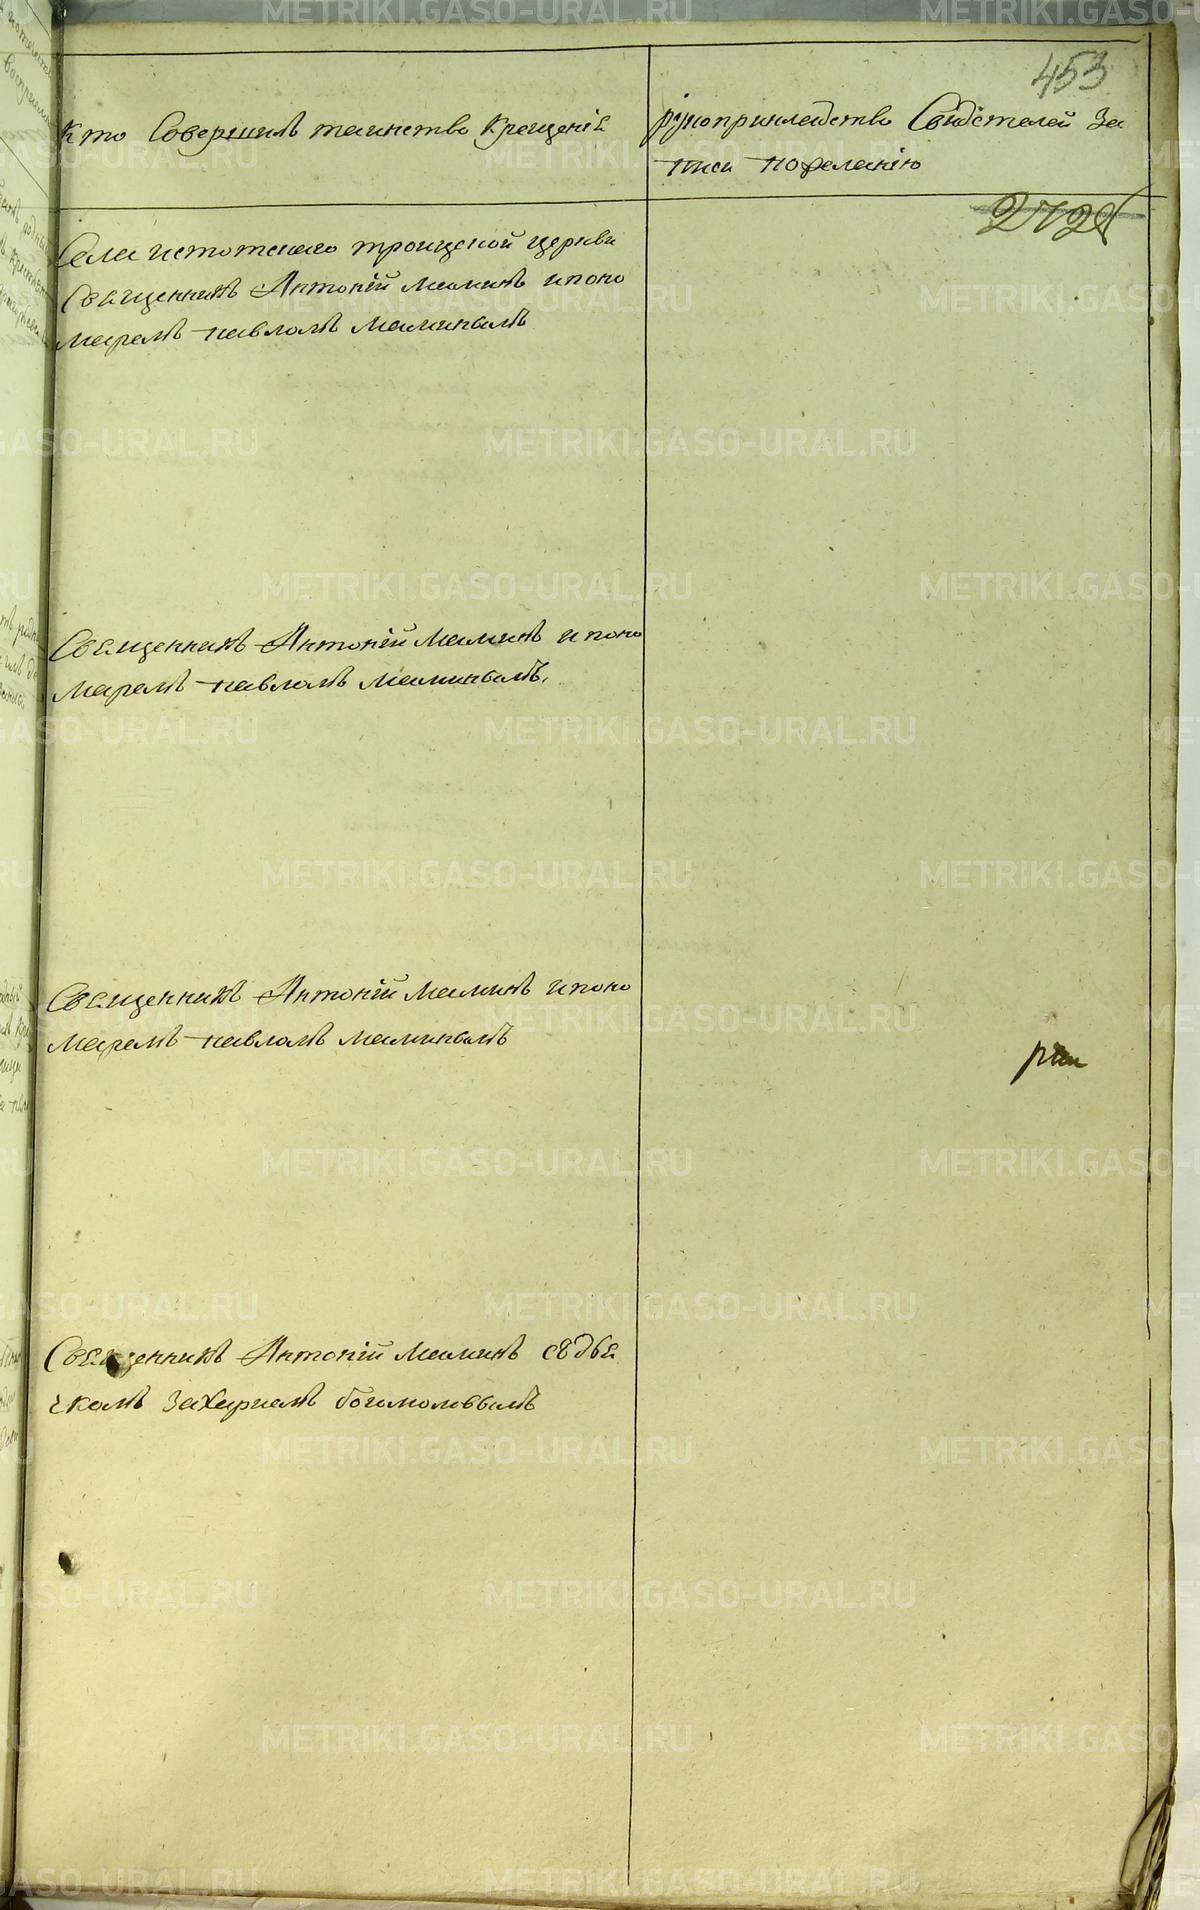 453
Кто Совершилъ таинство Крещенія
рукоприкладство Свидетелей За
писи пожеланію
Села истотскаго троицкой церкви
Священникъ Антоній маминъ ипоно
маремъ павломъ маминымъ
Священникъ Антоній Маминъ ипоно
маремъ павломъ маминымъ.
Священникъ Антоній маминъ ипоно
маремъ павломъ маминымъ
Священникъ Антоній маминъ съдья
чкомъ Захариемъ богомоловымъ
METRIKI.GASO-URAL.RU